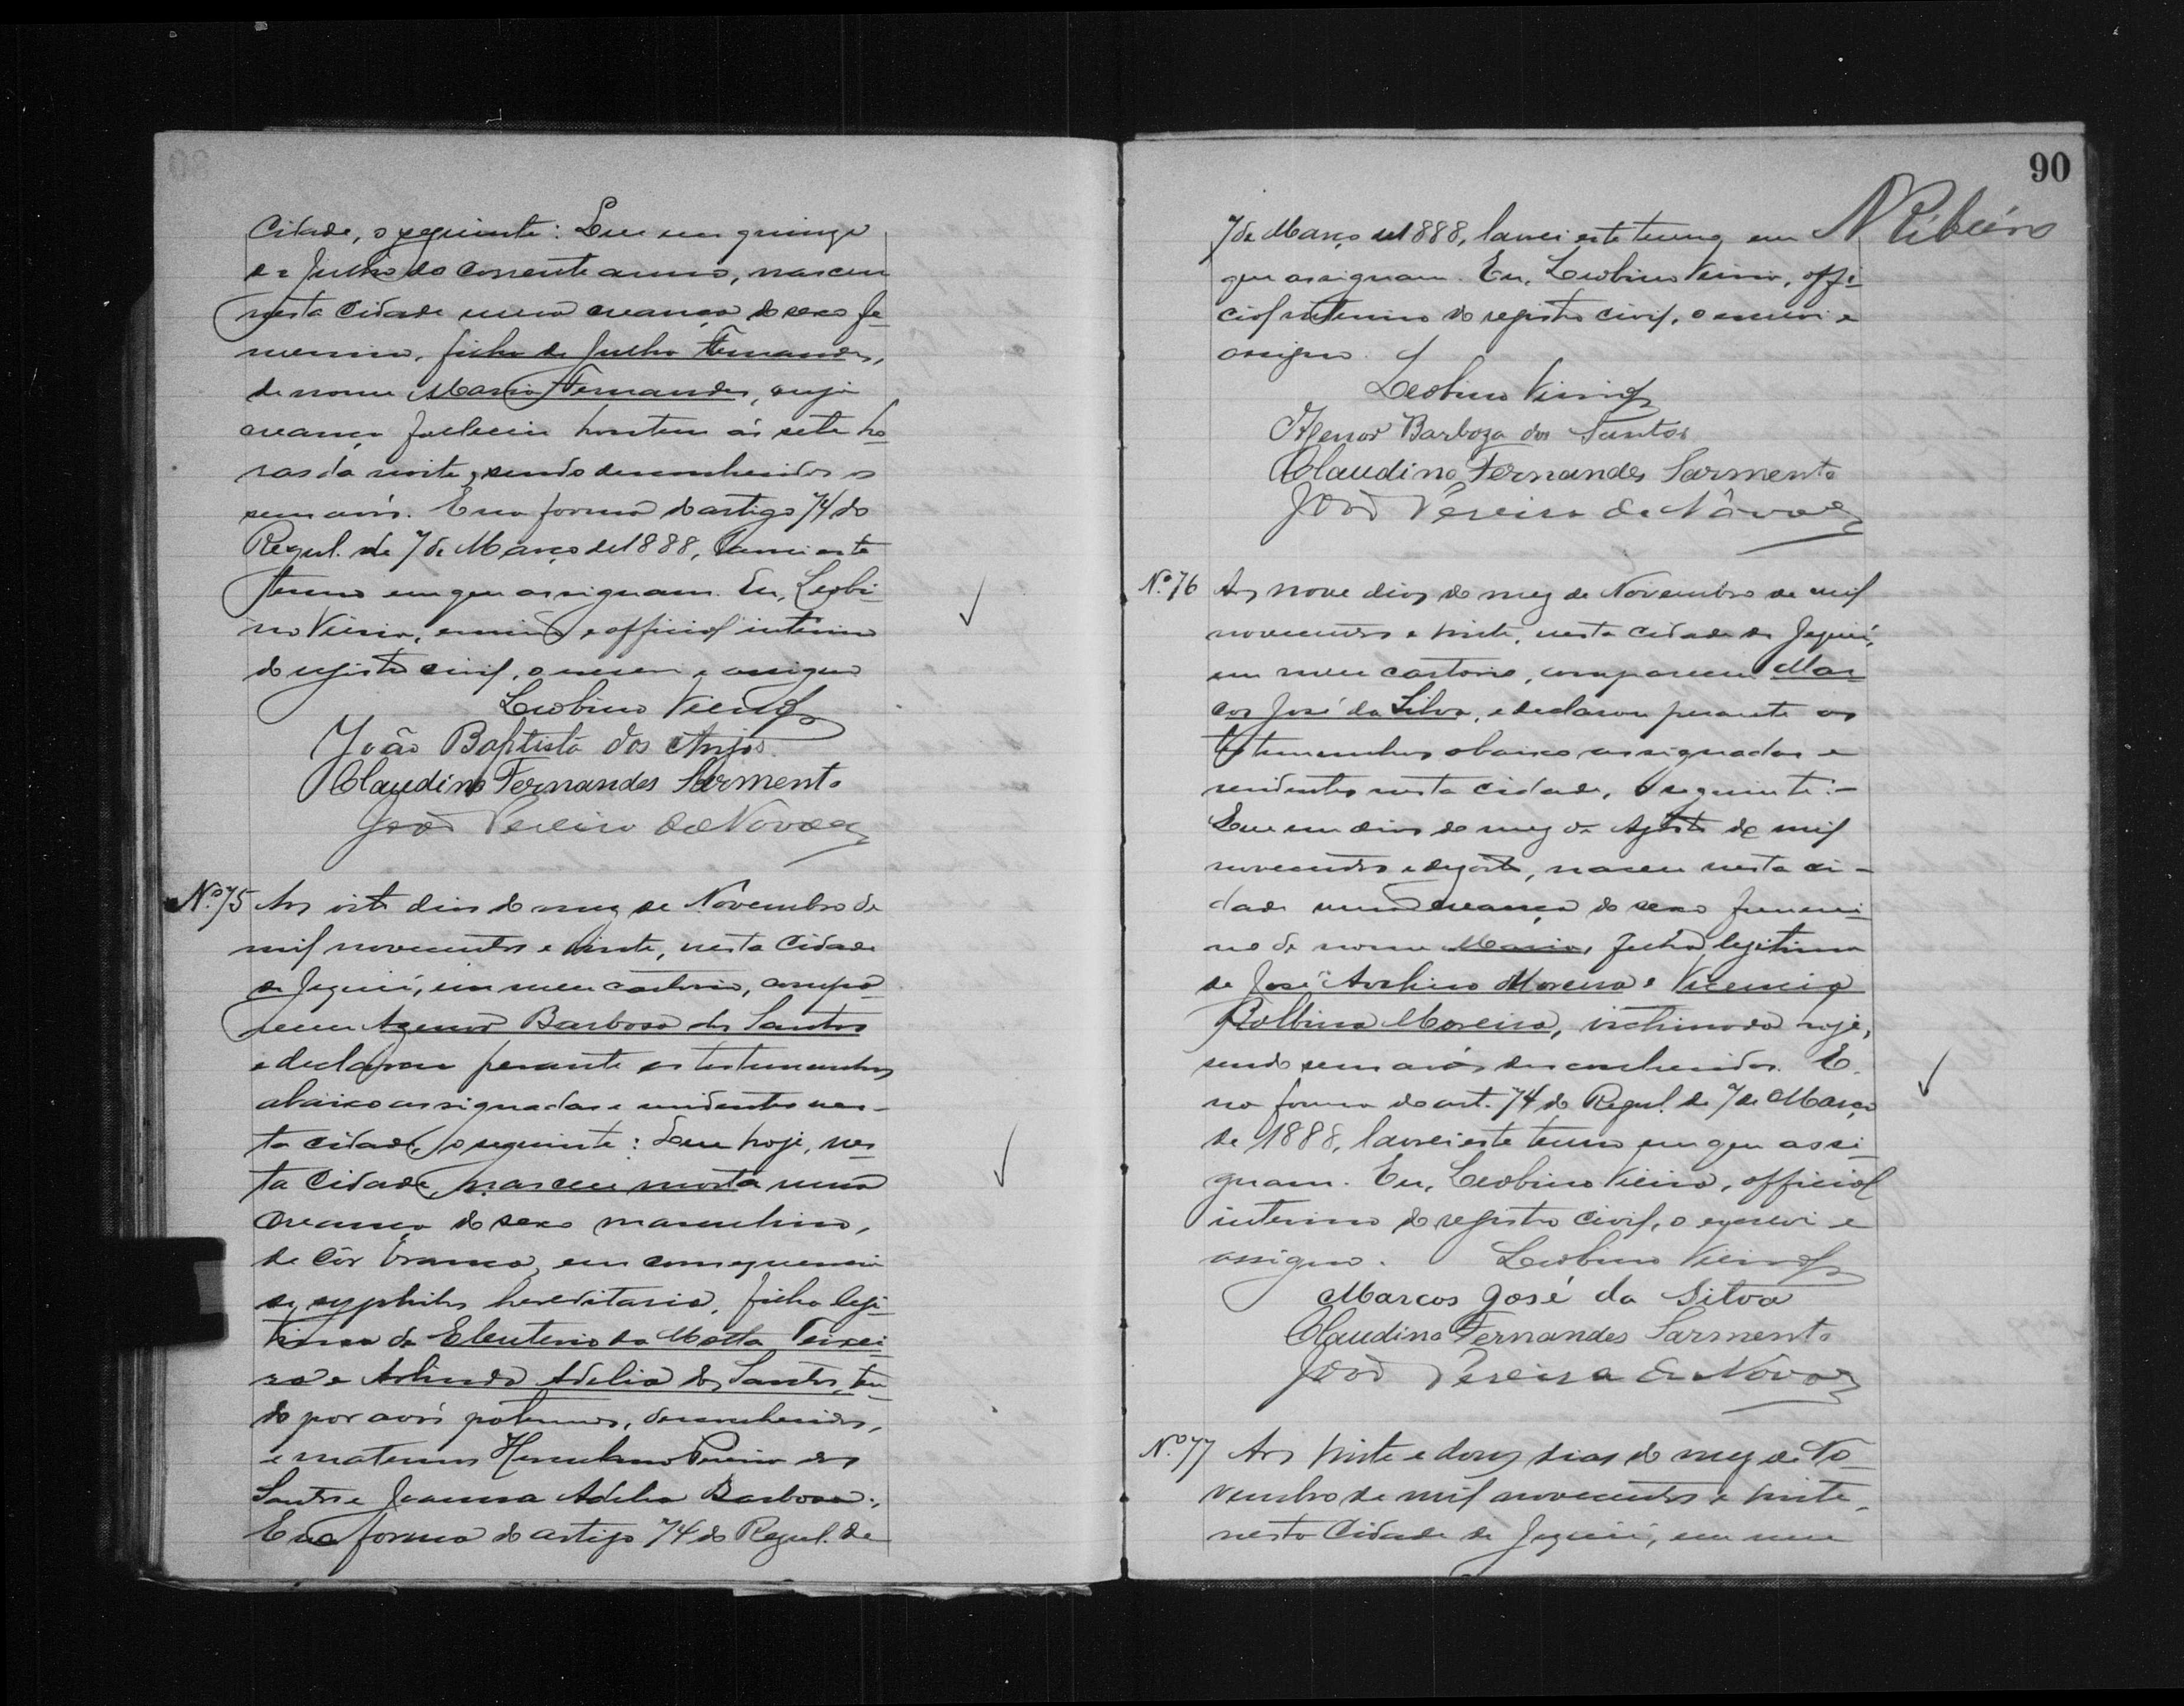 Cidade, o seguinte: Que em quinze
de Julho do corrente anno, nasceu
nesta Cidade uma creança do sexo fe-
menino, filha de Julho Fernandes,
de nome Maria Fernandes, cuja
creança falleceu hontem ás sete ho-
ras da noite, sendo desconhecidos os
seus avós. E na forma do artigo 74 do
Regul. de 7 de Março de 1888, lavrei este
termo em que assignam. Eu, Leobi-
no Vieira, escrivão e official interino
do registro civil, o escrevi e assigno
Leobino Vieira
João Baptista dos Anjos
Claudino Fernandes Sarmento
João Pereira de Novaes
Nº 75 Aos oito dias do mez de Novembro de
mil novecentos e vinte, nesta Cidade
de Jequié, em meu cartorio, compa-
receu Agenor Barbosa dos Santos
e declarou perante as testemunhas
abaixo assignadas e residentes nes-
ta cidade, o seguinte: Que hoje, nes-
ta Cidade, nasceu morta uma
creança do sexo masculino,
de côr branca, em consequencia
de syphilis hereditaria, filho legi-
timo de Eleuterio da Motta Teixei-
ra e Arlinda Adelia dos Santos, ten-
do por avós paternos, desconhecidos,
e maternos Herculano Pereira dos
Santos e Joanna Adelia Barbosa.
E na forma do artigo 74 do Regul. de
90
N Ribeiro
7 de Março de 1888, lavrei este termo, em
que assignam. Eu, Leobino Vieira, offi-
cial interino do registro civil, o escrevi e
assigno.
Leobino Vieira
Agenor Barboza dos Santos
Claudino Fernandes Sarmento
João Pereira de Nóvaes
Nº 76 Aos nove dias do mez de Novembro de mil
novecentos e vinte, nesta cidade de Jequié,
em meu cartorio, compareceu Mar-
cos José da Silva, e declarou perante as
testemunhas abaixo assignadas e
residentes nesta cidade, o seguinte:-
Que em dias do mez de Agosto de mil
novecentos e dezoito, nasceu nesta ci-
dade uma creança do sexo femeni-
no de nome Maria, filha legitima
de José Avelino Moreira e Vicencia
Moreira, hoje,
sendo seus avós desconhecidos. E
na forma do art. 74 do Regul. de 7 de Março
de 1888, lavrei este termo em que assi-
gnam. Eu, Leobino Vieira, official
interino do registro civil, o escrevi e
assigno. Leobino Vieira
Marcos José da Silva
Claudino Fernandes Sarmento
João Pereira de Nóvaes
Nº 77 Aos vinte e dous dias do mez de No-
vembro de mil novecentos e vinte,
nesta Cidade de Jequié, em meu